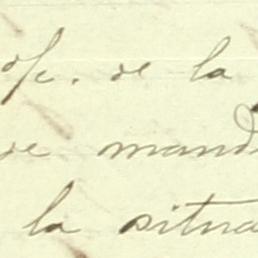 de la
de mand
la situa